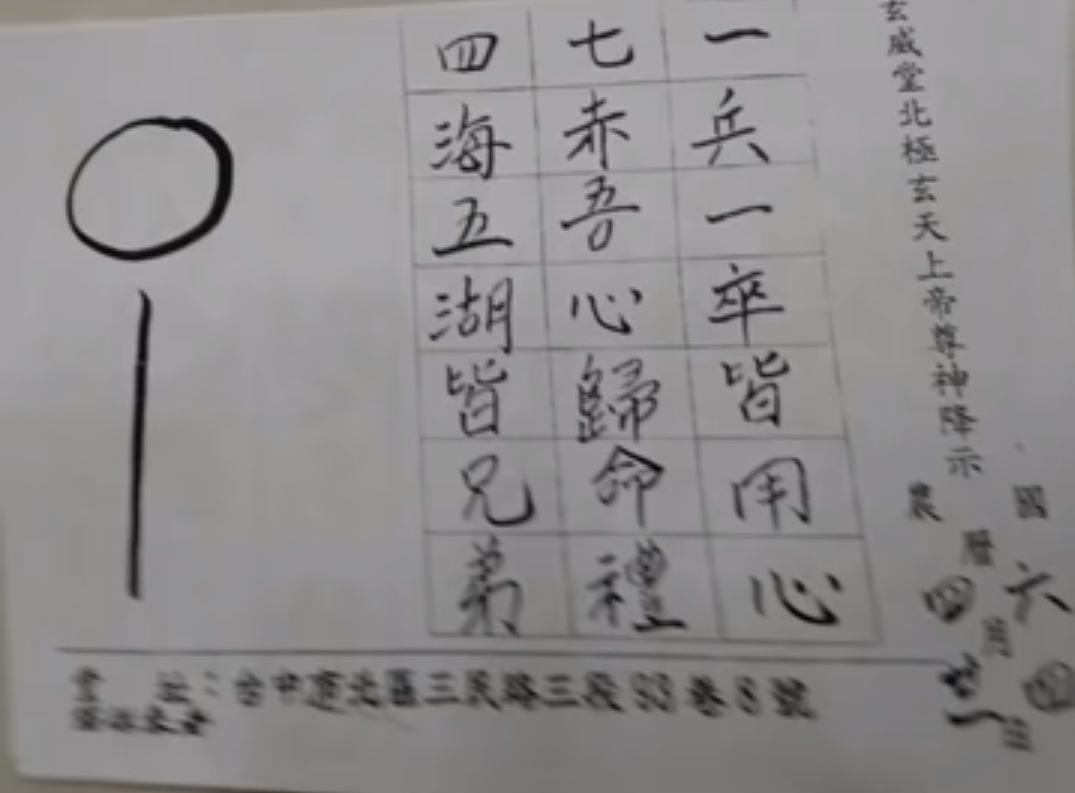 玄威堂北極玄天上帝尊神降示
國六四
農曆四月廿一日
一兵一卒皆用心
七赤吾心歸命禮
四海五湖皆兄弟
○｜
堂址：台中市北區三民路三段93巷8號